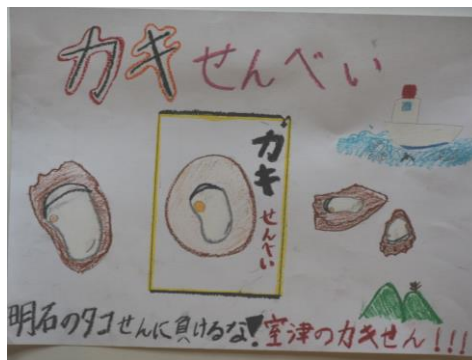 カキせんべい
カキ
せんべい
明石のタコせんに負けるな!室津のカキせん!!!